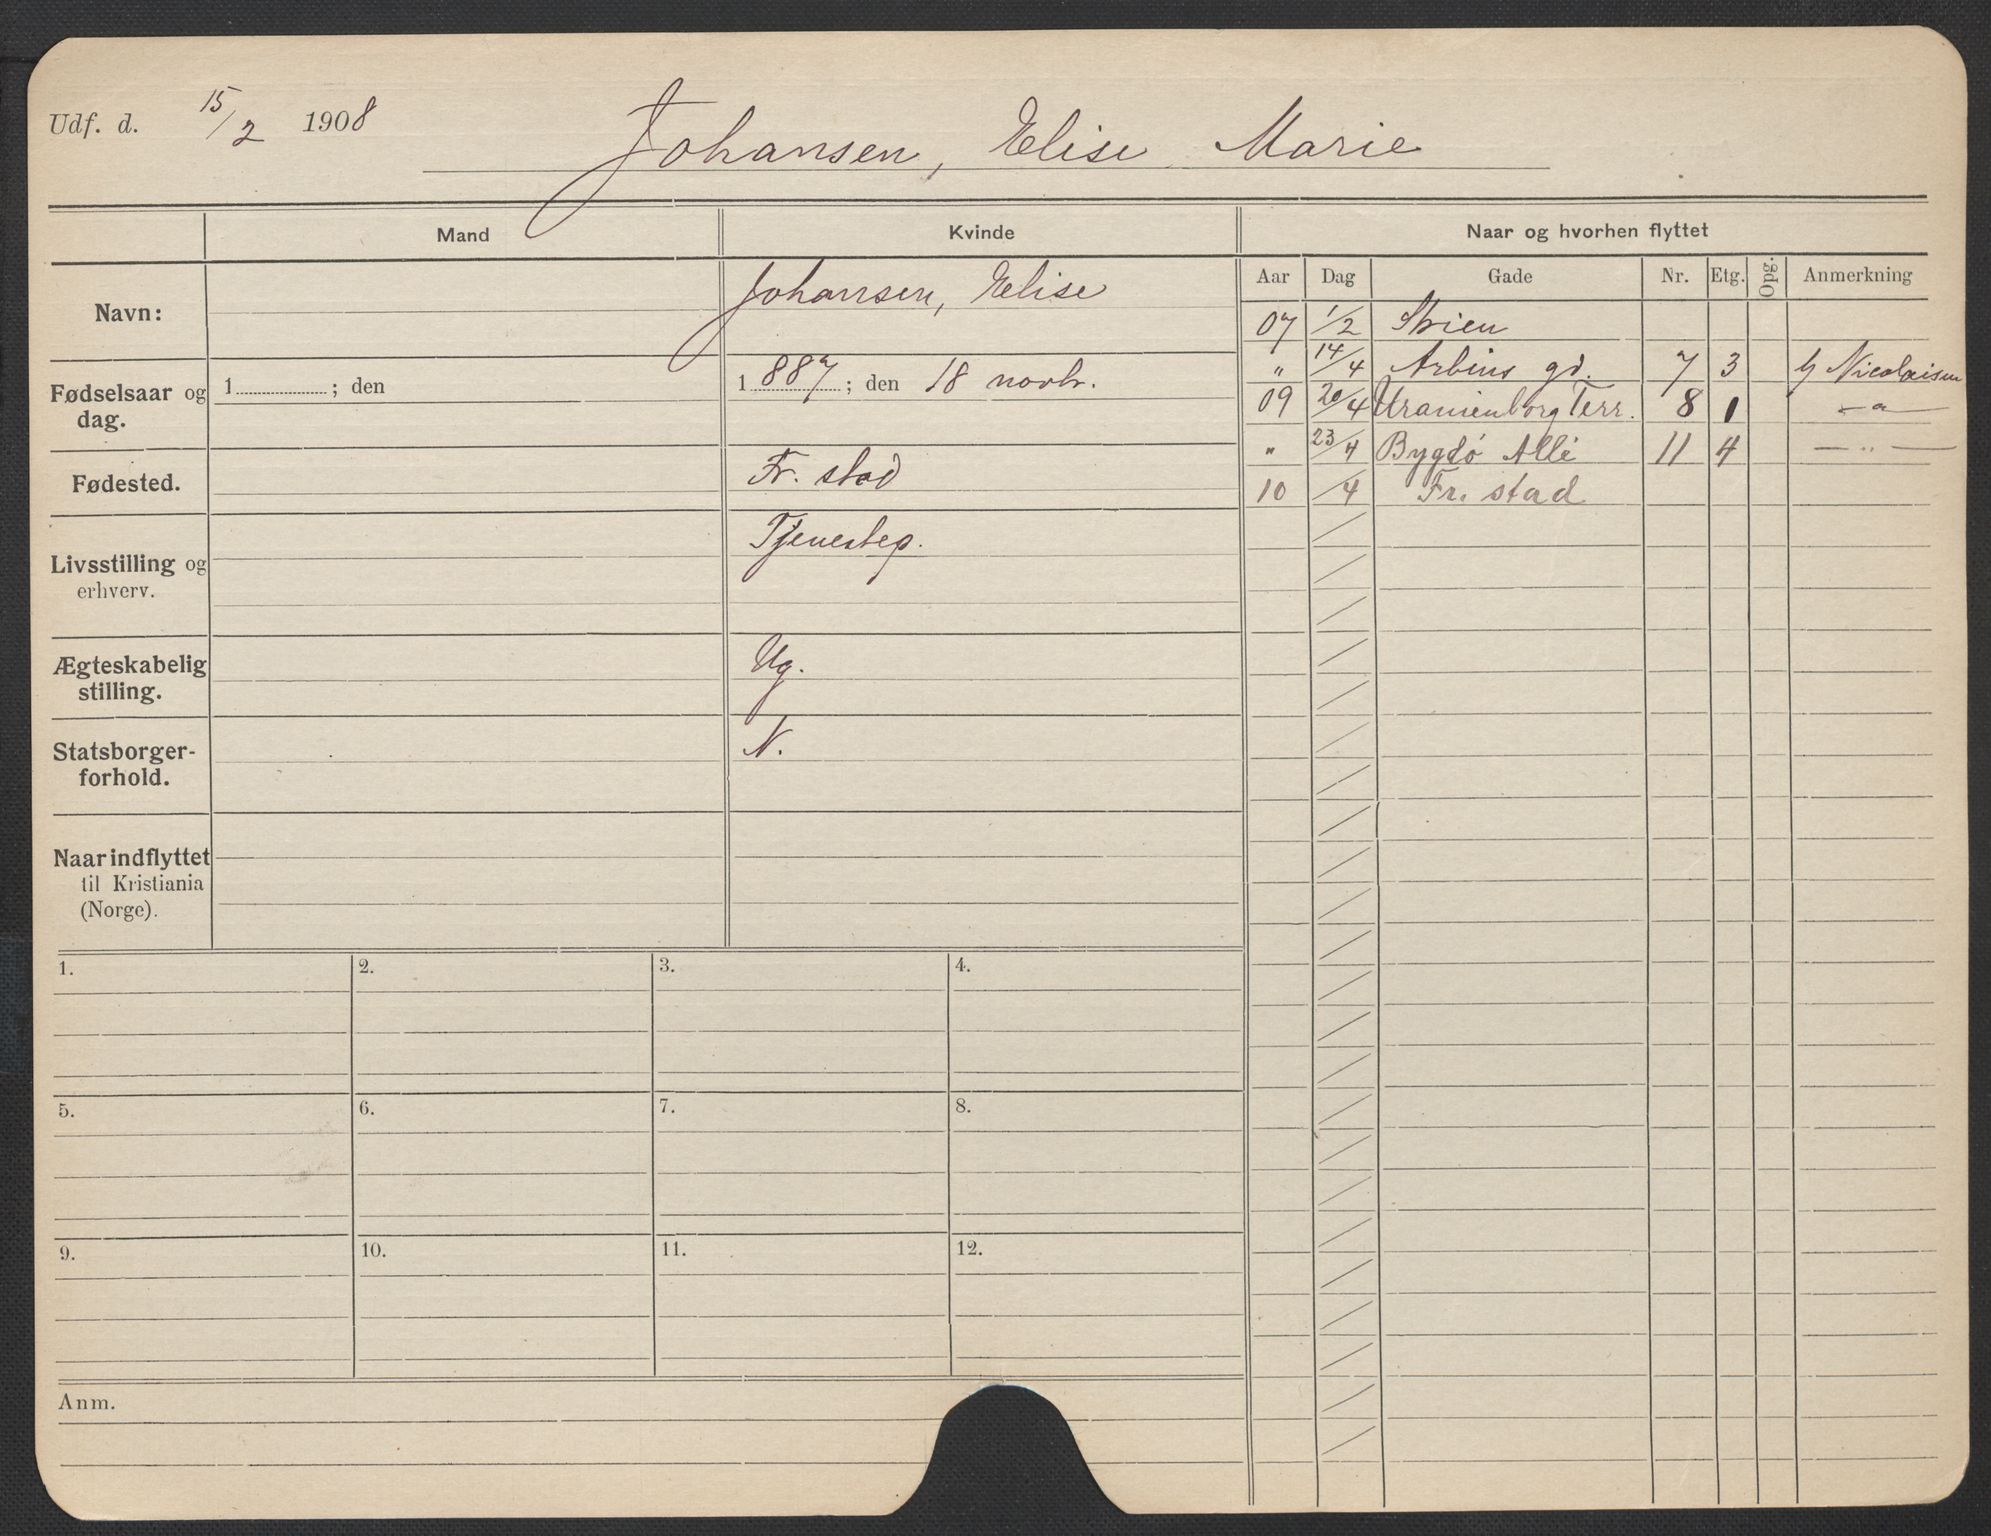 Udf. d. 15/2 1908 Johansen, Elise Marie
Mand Kvinde Naar og hvorhen flyttet
Aar Dag Gade Nr. Etg. Opg. Anmerkning
Navn: Johansen, Elise
Fødselsaar og dag. 1 ; den 1 887 ; den 18 novbr.
Fødested. Fr. stad
Livsstilling og erhverv. Tjenestep.
Ægteskabelig stilling. Ug.
Statsborger-forhold. N.
Naar indflyttet til Kristiania (Norge).
07 1/2 Skien
" 14/4 Arbins gd. 7 3 h/ Nicolaisen
09 20/4 Uranienborg Terr. 8 1 — " —
" 23/4 Bygdø Allé 11 4 — " —
10 /4 Fr. stad
1. 2. 3. 4.
5. 6. 7. 8.
9. 10. 11. 12.
Anm.